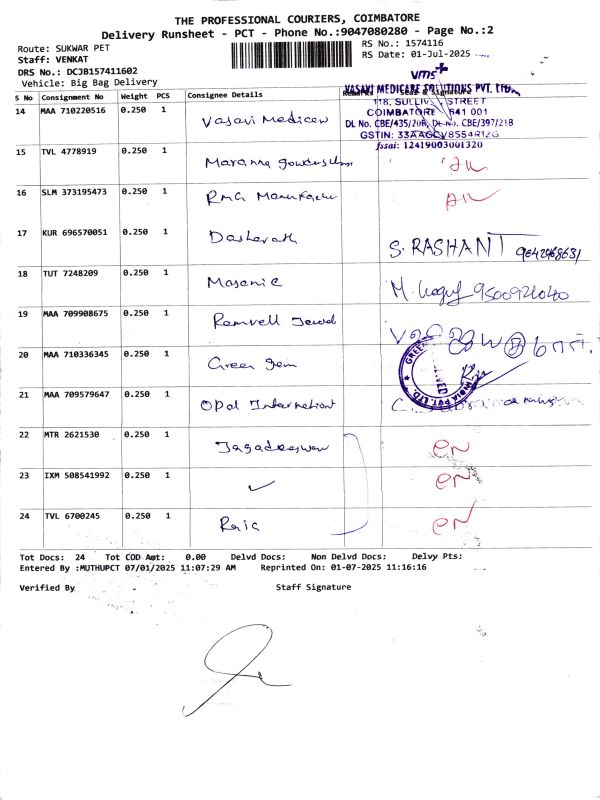 THE PROFESSIONAL COURIERS, COIMBATORE
Delivery Runsheet - PCT - Phone No.:9047080280 - Page No.:2
Route: SUKWAR PET
Staff: VENKAT
DRS No.: DCJB157411602
Vehicle: Big Bag Delivery
RS No.: 1574116
RS Date: 01-Jul-2025
vms+
VASAVI MEDICARE SOLUTIONS PVT. LTD.
118, SULLIVAN STREET
COIMBATORE 641 001
DL No. CBE/435/20B, DL No. CBE/397/21B
GSTIN: 33AAGCV8554R1ZG
fssai: 12419003001320
S No Consignment No Weight PCS Consignee Details Remarks Seal & Signature
14 MAA 710220516 0.250 1 Vasavi Medicare
15 TVL 4778919 0.250 1
16 SLM 373195473 0.250 1 RMG
17 KUR 696570051 0.250 1 Dasharath S. RASHANT
18 TUT 7248209 0.250 1 9500921040
19 MAA 709908675 0.250 1 Ramvell Jewel
20 MAA 710336345 0.250 1 Green Gem
21 MAA 709579647 0.250 1 Opal
22 MTR 2621530 0.250 1 Jagadeeswari
23 IXM 508541992 0.250 1
24 TVL 6700245 0.250 1
Tot Docs: 24 Tot COD Amt: 0.00 Delvd Docs: Non Delvd Docs: Delvy Pts:
Entered By :MUTHUPCT 07/01/2025 11:07:29 AM Reprinted On: 01-07-2025 11:16:16
Verified By Staff Signature